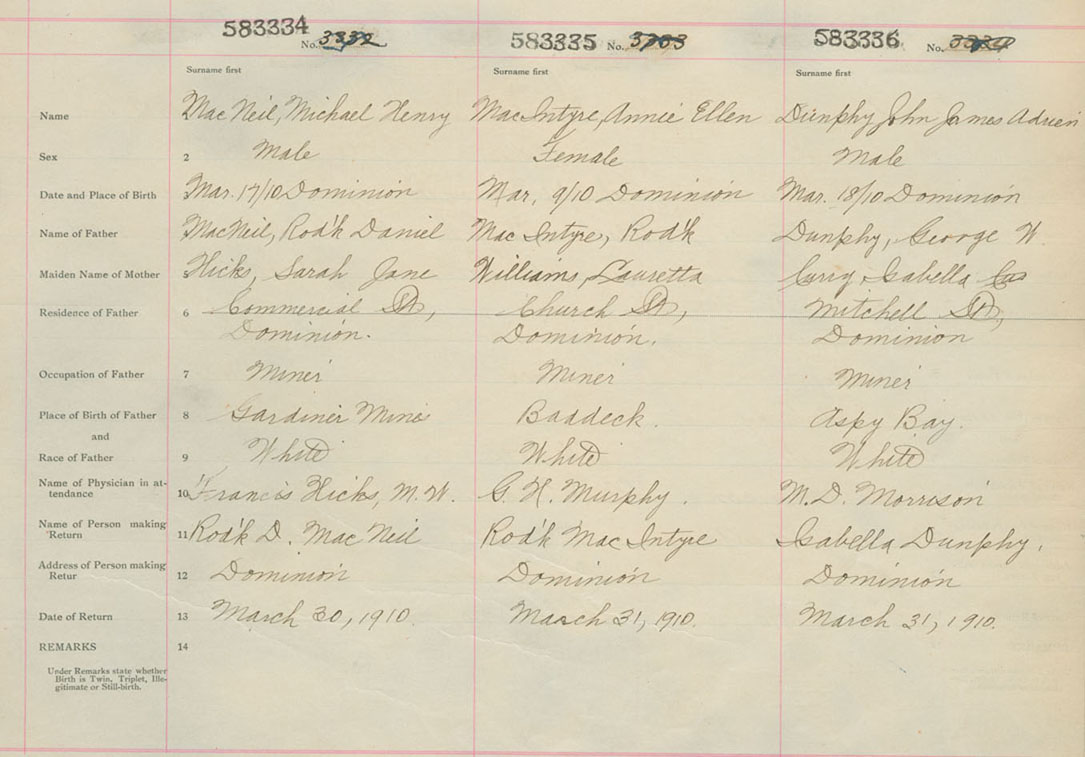 583334 No. 3332 583335 No. 3333 583336 No. 3334
Surname first Surname first Surname first
Name MacNeil, Michael Henry MacIntyre, Annie Ellen Dunphy John James Adrien
Sex 2 Male Female Male
Date and Place of Birth Mar. 17/10 Dominion Mar, 9/10 Dominion Mar. 18/10 Dominion
Name of Father MacNeil, Rod'k Daniel MacIntyre, Rod'k Dunphy, George W.
Maiden Name of Mother Hicks, Sarah Jane Williams, Lauretta Curry, Isabella
Residence of Father 6 Commercial St, Church St, Mitchell St,
Dominion. Dominion. Dominion
Occupation of Father 7 Miner Miner Miner
Place of Birth of Father 8 Gardiner Mine Baddeck. Aspy Bay.
and
Race of Father 9 White White White
Name of Physician in at-
tendance 10 Francis Hicks, M.W. G. H. Murphy. M.D. Morrison
Name of Person making
Return 11 Rod'k D. MacNeil Rod'k MacIntyre Isabella Dunphy.
Address of Person making
Retur 12 Dominion Dominion Dominion
Date of Return 13 March 30, 1910. March 31, 1910. March 31, 1910.
REMARKS 14
Under Remarks state whether
Birth is Twin, Triplet, Ille-
gitimate or Still-birth.